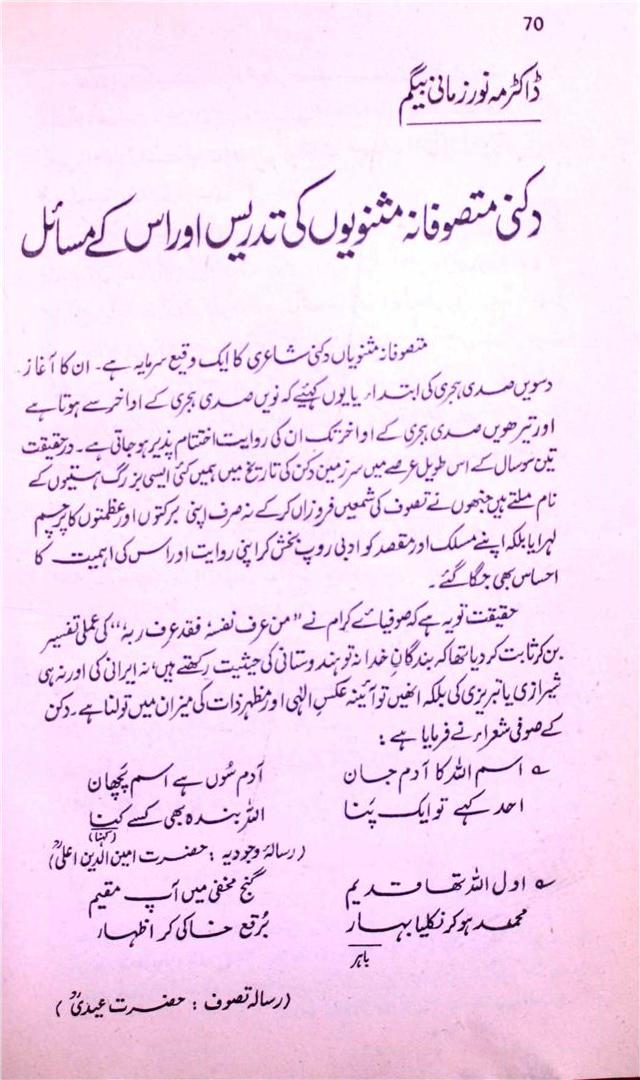 70
ڈاکٹر مہ نور زمانی بیگم
دکنی متصوفانہ مثنویوں کی تدریس اور اس کے مسائل
متصوفانہ مثنویاں دکنی شاعری کا ایک وقیع سرمایہ ہے۔ ان کا آغاز
دسویں صدی ہجری کی ابتداء یا یوں کہئیے کہ نویں صدی ہجری کے اواخر سے ہوتا ہے
اور تیرھویں صدی ہجری کے اواخر تک ان کی روایت اختتام پذیر ہو جاتی ہے۔ درحقیقت
تین سو سال کے اس طویل عرصے میں سرزمین دکن کی تاریخ میں ہمیں کئی ایسی بزرگ ہستیوں کے
نام ملتے ہیں جنھوں نے تصوف کی شمعیں فروزاں کر کے نہ صرف اپنی برکتوں اور عظمتوں کا پرچم
لہرایا بلکہ اپنے مسلک اور مقصد کو ادبی روپ بخش کر اپنی روایت اور اس کی اہمیت کا
احساس بھی جگا گئے۔
حقیقت تو یہ ہے کہ صوفیائے کرام نے "من عرف نفسہٗ فقد عرف ربہٗ" کی عملی تفسیر
بن کر ثابت کر دیا تھا کہ بندگانِ خدا نہ تو ہندوستانی کی حیثیت رکھتے ہیں، نہ ایرانی کی اور نہ ہی
شیرازی یا تبریزی کی بلکہ انھیں تو آئینہ عکسِ الٰہی اور مظہرِ ذات کی میزان میں تولنا ہے۔ دکن
کے صوفی شعراء نے فرمایا ہے:
؎ اسم اللہ کا آدم جان آدم سُوں ہے اسم پچھان
احد کہے تو ایک پَنا اللہ بندہ بھی کسے کہنا
(کہنا)
(رسالۂ وجودیہ: حضرت امین الدین اعلیٰؒ)
؎ اول اللہ تھا قدیم گنجِ مخفی میں آپ مقیم
محمد ہو کر نکلیا بہار بُرقع خاکی کر اظہار
باہر
(رسالہ تصوف: حضرت عیدیؒ)